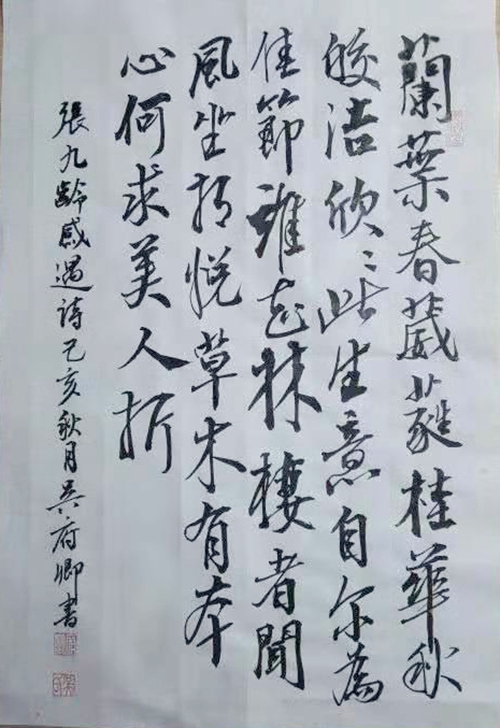 蘭葉春葳蕤桂華秋
皎洁欣々此生意自尔為
佳節誰知林棲者聞
風坐相悦草木有本
心何求美人折
張九龄感遇詩己亥秋月吳府卿書